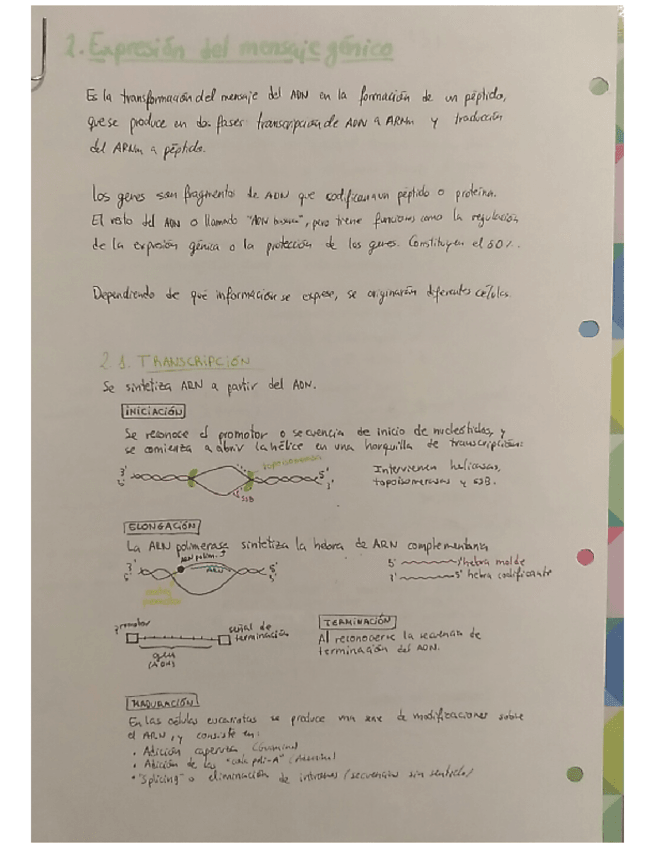 2. Expresión del mensaje génico
Es la transformación del mensaje del ADN en la formación de un péptido,
que se produce en dos fases: transcripción de ADN a ARNm y traducción
del ARNm a péptido.
Los genes son fragmentos de ADN que codifican un péptido o proteína.
El resto del ADN o llamado "ADN basura", pero tiene funciones como la regulación
de la expresión génica o la protección de los genes. Constituyen el
Dependiendo de qué información se exprese, se originarán diferentes células.
2.1. TRANSCRIPCIÓN
Se sintetiza ARN a partir del ADN.
INICIACIÓN
Se reconoce el promotor o secuencia de inicio de nucleótidos, y
se comienza a abrir la hélice en una horquilla de transcripción:
topoisomerasa
3' 5'
5' 3'
SSB
Intervienen helicasas,
topoisomerasas y SSB.
ELONGACIÓN
La ARN polimerasa sintetiza la hebra de ARN complementaria
ARN polim.
3' ARN 5'
5' 3'
5' hebra molde
3' 5' hebra codificante
promotor
señal de
terminación
gen
(ADN)
TERMINACIÓN
Al reconocerse la secuencia de
terminación del ADN.
MADURACIÓN
En las células eucariotas se produce una serie de modificaciones sobre
el ARN, y consiste en:
· Adición caperuza (Guanina)
· Adición de la "cola poli-A" (Adenina)
· "Splicing" o eliminación de intrones (secuencias sin sentido)